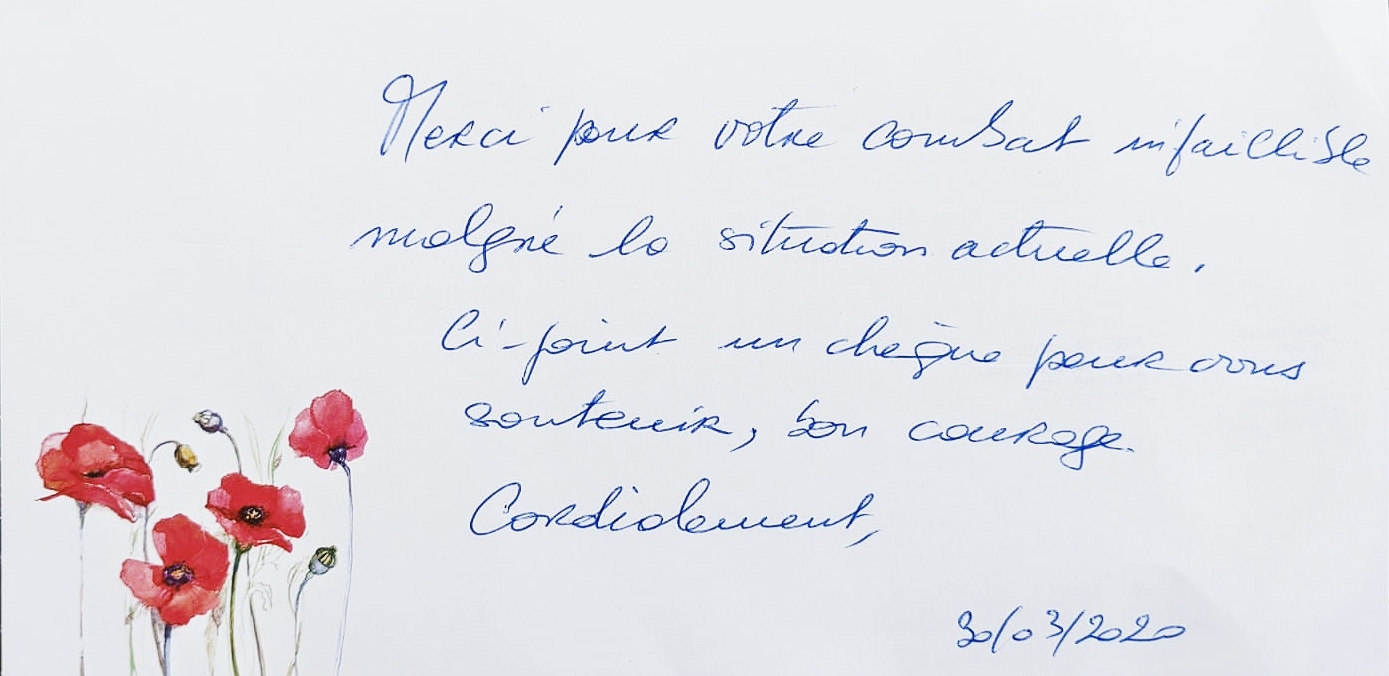 Merci pour votre combat infaillible
malgré la situation actuelle.
Ci-joint un chèque pour vous
soutenir, bon courage.
Cordialement,
30/03/2020